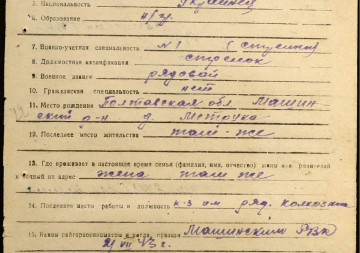 5. Национальность украинец
6. Образование н/ср.
7. Военно-учетная специальность №1 (стрелки)
8. Должностная квалификация стрелок
9. Военное звание рядовой
10. Гражданская специальность нет
11. Место рождения Полтавская обл. Машин
ский р-н д.
12. Последнее место жительства там-же
13. Где проживает в настоящее время семья (фамилия, имя, отчество) жены или родителей
и точный их адрес жена там же
14. Последнее место работы и должность к-з им ряд. колхозник
15. Каким райгорвоенкоматом и когда призван Машинским РВК
43 г.